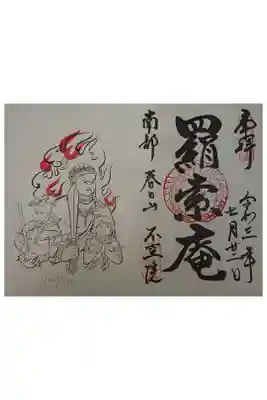 奉拝
令和三年
七月廿三日
羂索庵
南都 春日山 不空院